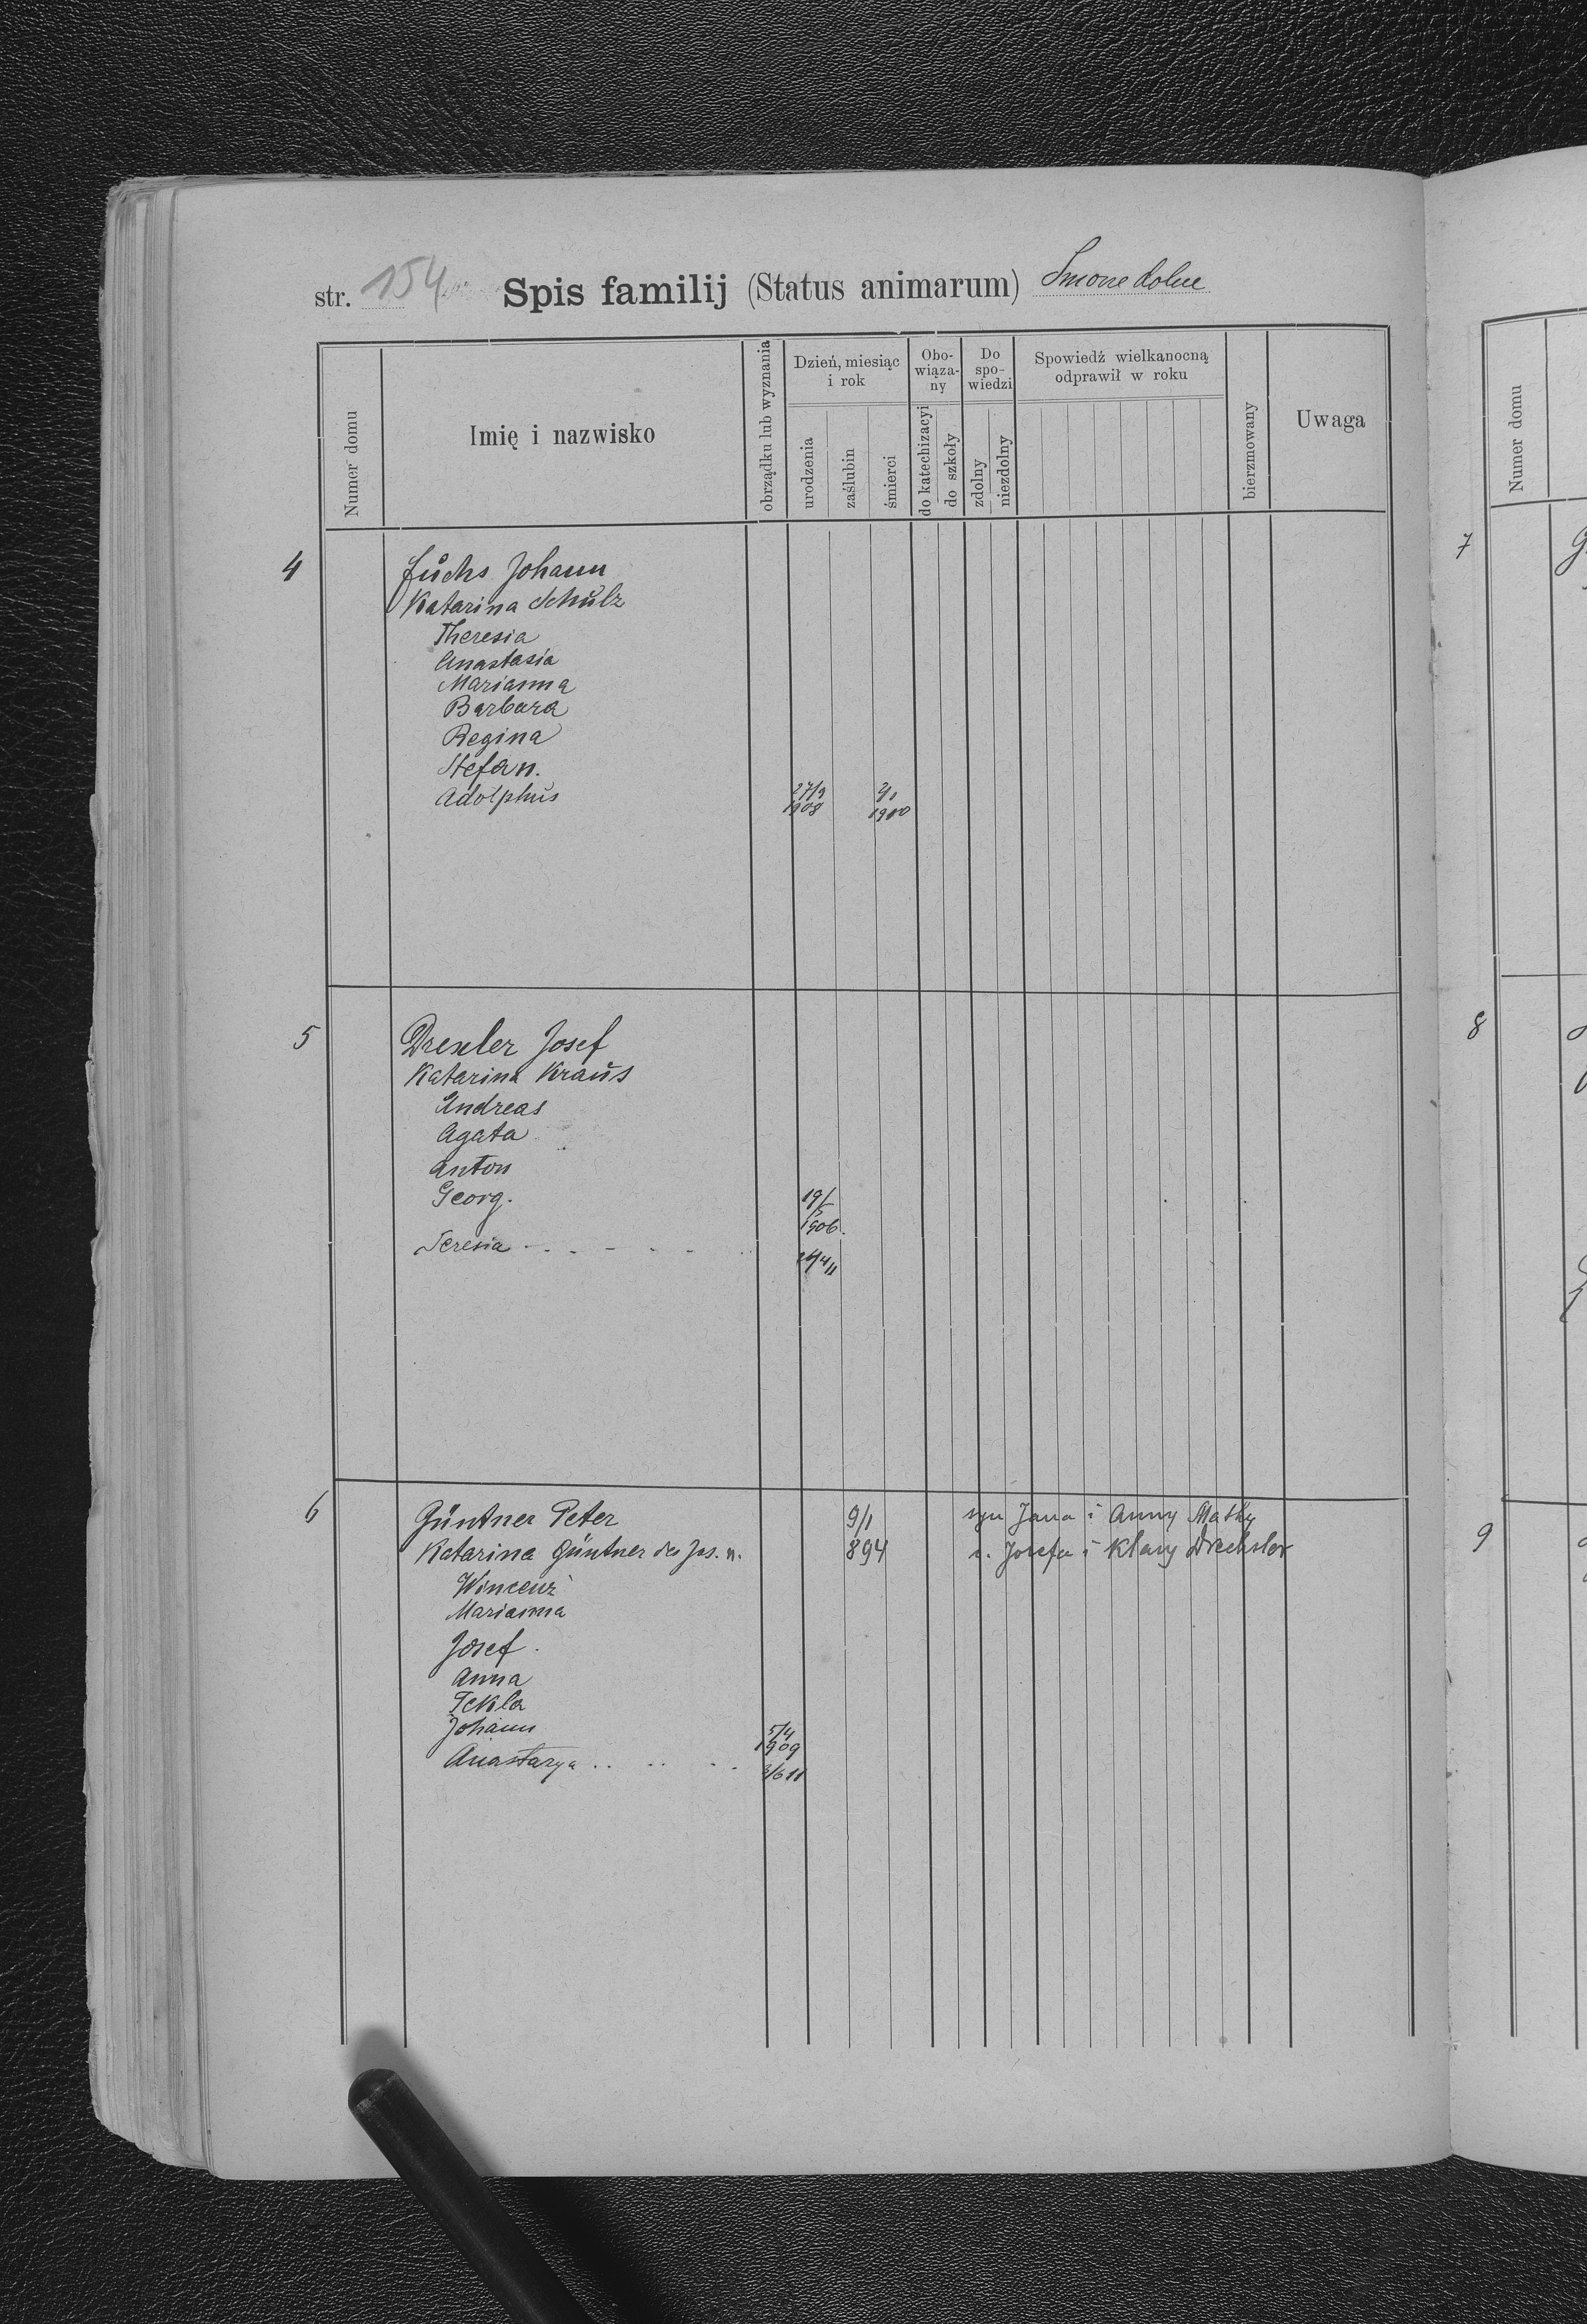 str. 154 Spis familij (Status animarum) Smorze dolne
Numer domu
Imię i nazwisko
obrządku lub wyznania
Dzień, miesiąc
i rok
urodzenia
zaślubin
śmierci
Obo-
wiąza-
ny
do katechizacyi
do szkoły
Do
spo-
wiedzi
zdolny
niezdolny
Spowiedź wielkanocną
odprawił w roku
bierzmowany
Uwaga
4 Fuchs Johann
Katarina Schulz
Theresia
Anastasia
Marianna
Barbara
Regina
Stefan.
Adolphus 27/9 2/1
1908 1910
5 Drexler Josef
Katarina Kraus
Andreas
Agata
Anton
Georg. 19/5
1906.
Teresia - . . - . . .
6 Güntner Peter 9/1 syn Jana i Anny Matky
Katarina Güntner des Jos. n. 894 c. Josefa i Klary Drechsler
Wincenz
Marianna
Josef.
Anna
Tekla
Johann 5/4
1909
Anastazya . . . . . . 3/6 11
Numer domu
7
8
9